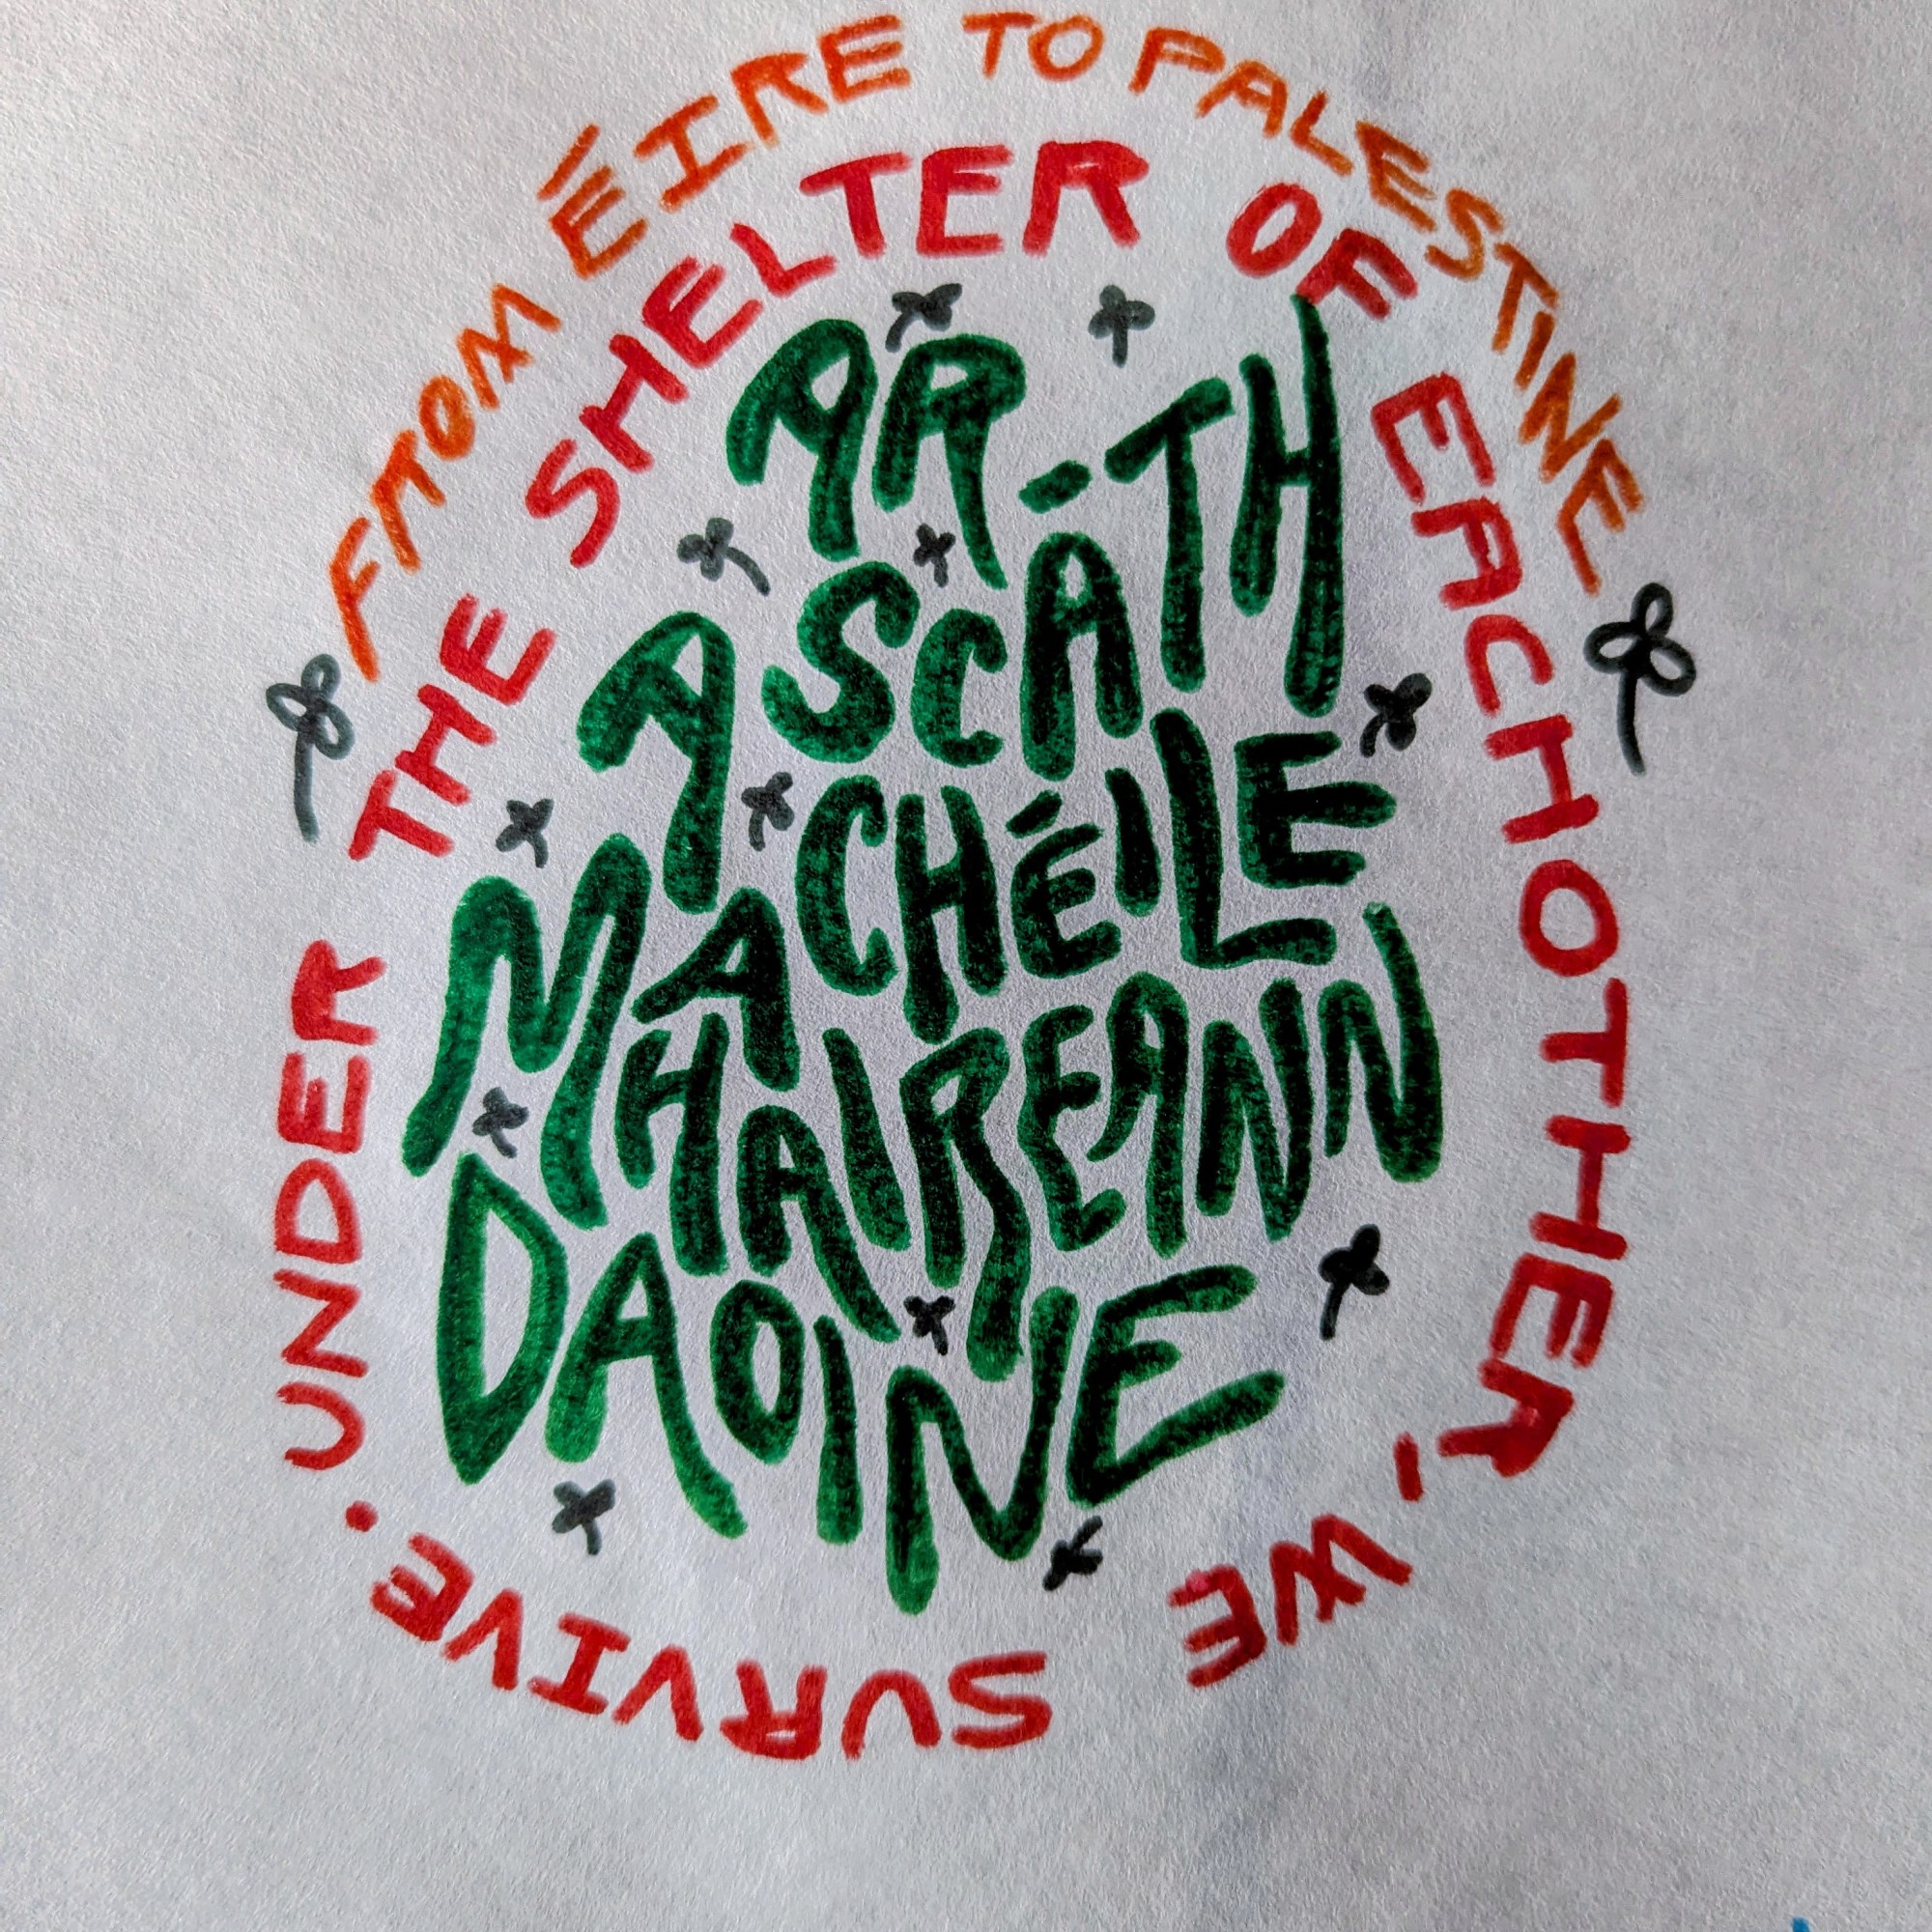 FROM ÉIRE TO PALESTINE
UNDER THE SHELTER OF EACHOTHER, WE SURVIVE.
AR SCÁTH
A CHÉILE
A MHAIREANN
DAOINE